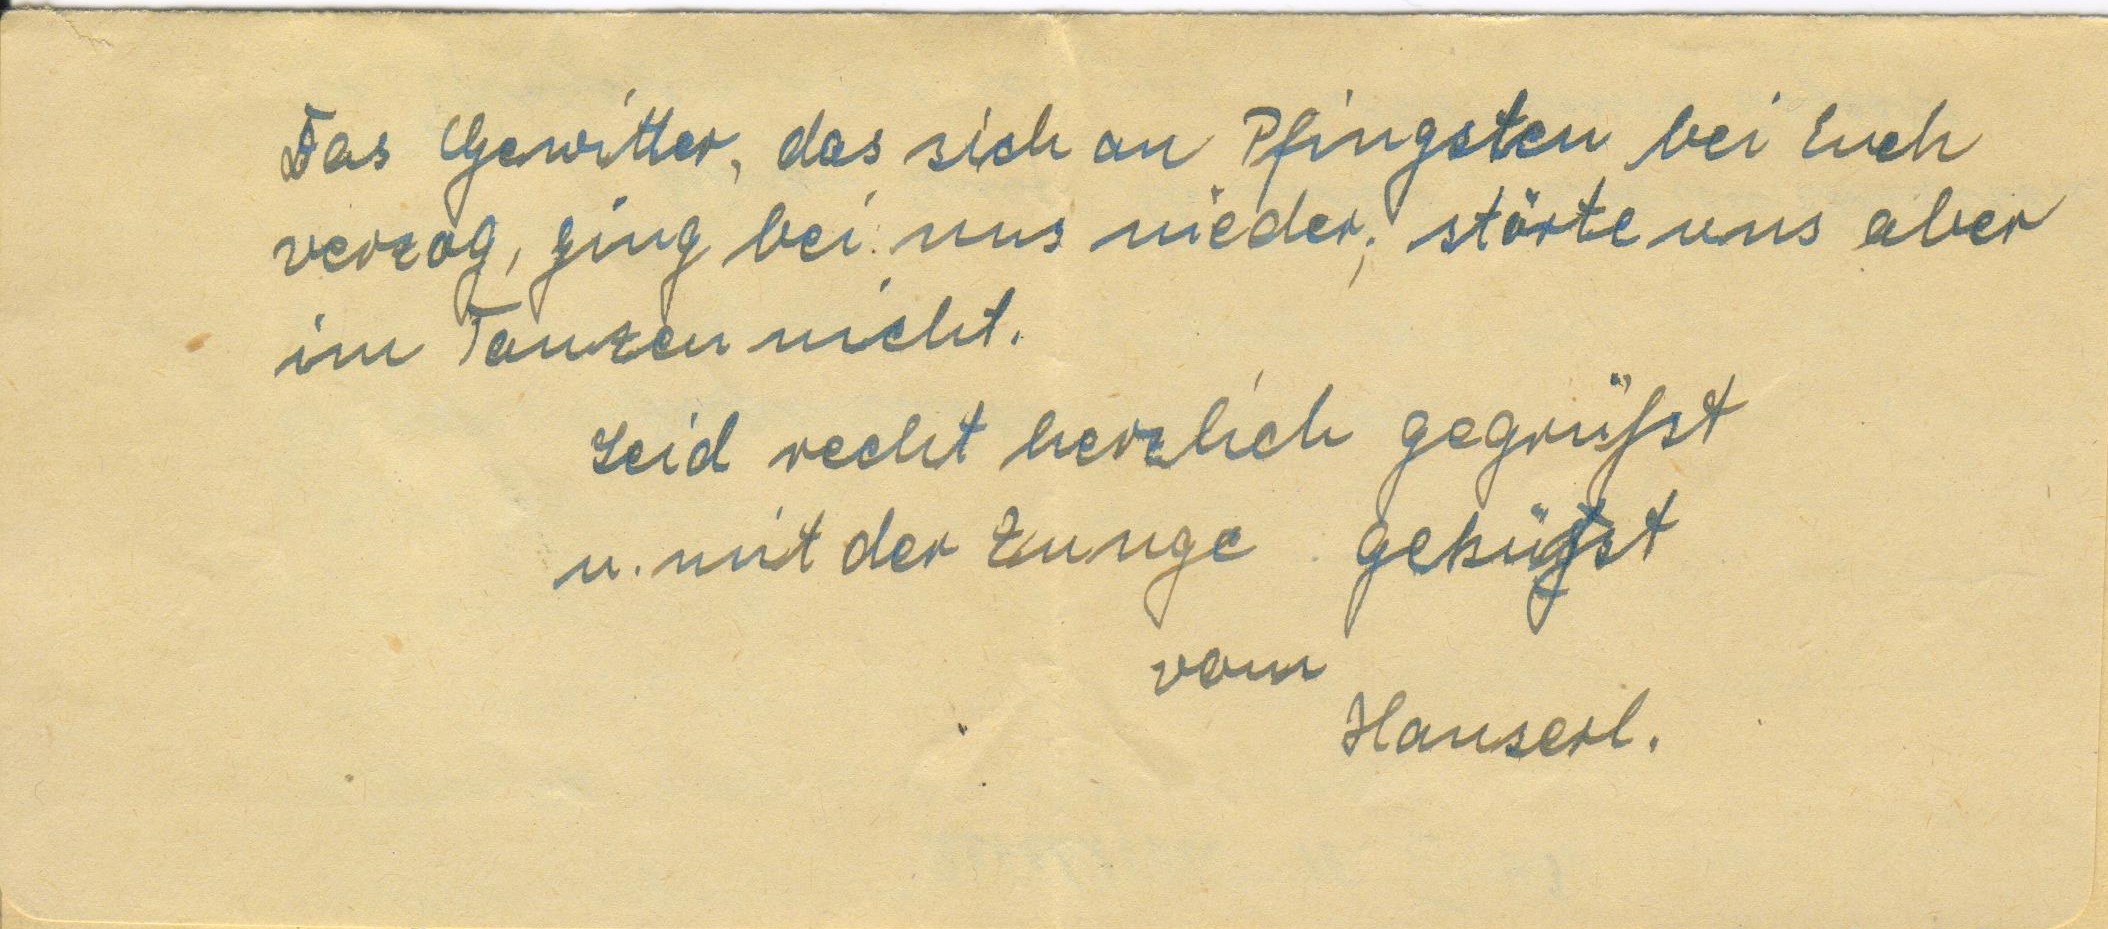 Das Gewitter, das sich an Pfingsten bei Euch
verzog, ging bei uns nieder; störte uns aber
im Tanzen nicht.
Seid recht herzlich gegrüßt
u. mit der Zunge geküßt
vom
Hanserl.